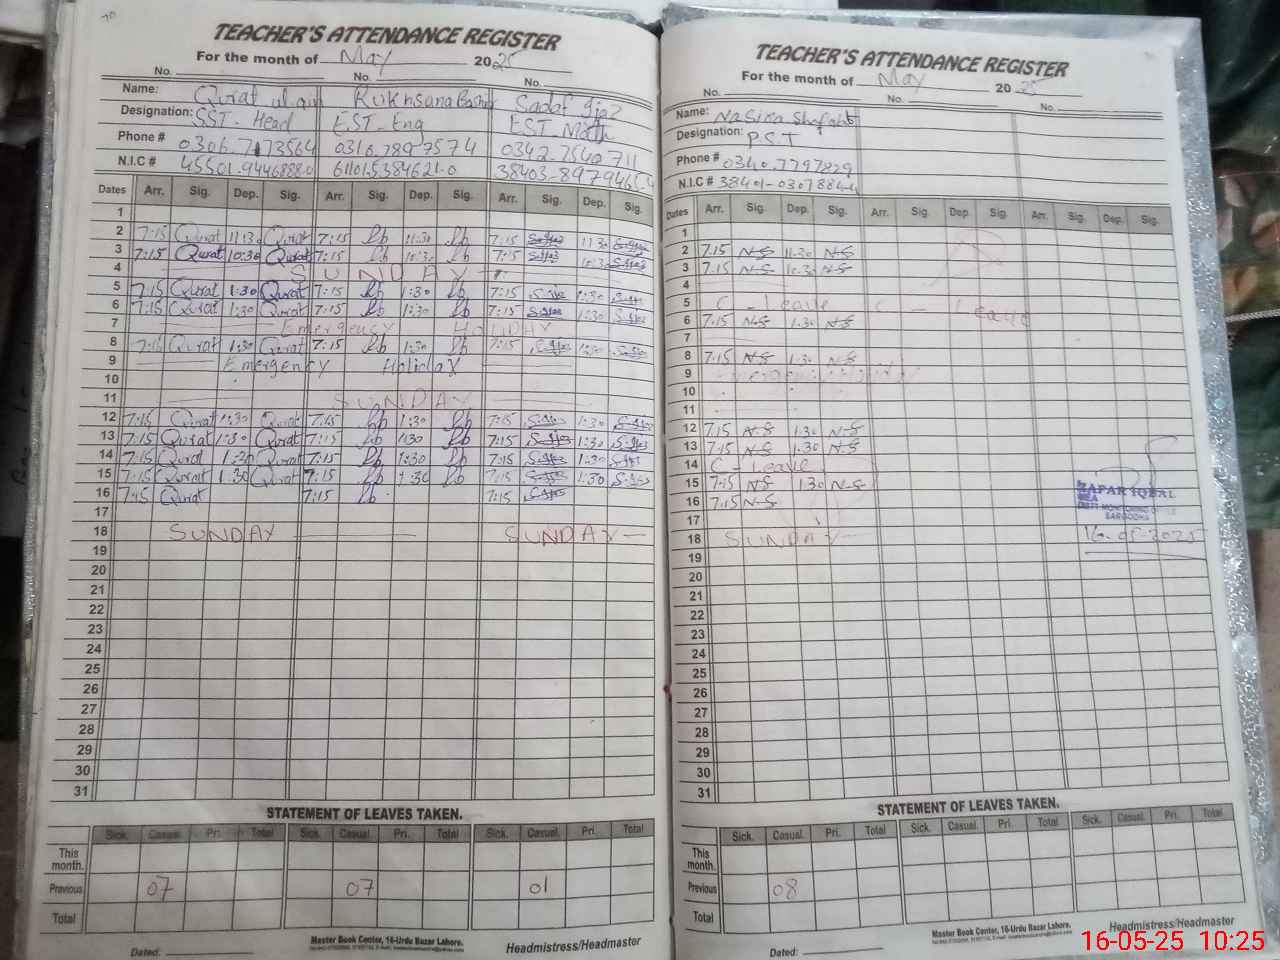 TEACHER'S ATTENDANCE REGISTER
For the month of May 2025
No. No. No.
Name: Qurat ul ain Rukhsana Bashir Sadaf Ijaz
Designation: SST-Head EST-Eng EST-Math
Phone # 0316.7897574 0342-7540711
N.I.C # 45501.9446888.0 61101.5384621-0
Dates Arr. Sig. Dep. Sig. Arr. Sig. Dep. Sig. Arr. Sig. Dep. Sig.
1
2 7:15 Qurat 11:30 Qurat 7:15 11:30 7:15 11:30
3 7:15 Qurat 10:30 Qurat 7:15 10:30 7:15 10:30
4 SUNDAY
5 7:15 Qurat 1:30 Qurat 7:15 1:30 7:15 1:30
6 7:15 Qurat 1:30 Qurat 7:15 1:30 7:15 1:30
7 Emergency Holiday
8 7:15 Qurat 1:30 Qurat 7:15 1:30 7:15 1:30
9 Emergency Holiday
10
11 SUNDAY
12 7:15 Qurat 1:30 Qurat 7:15 1:30 7:15 1:30
13 7:15 Qurat 1:30 Qurat 7:15 1:30 7:15 1:30
14 7:15 Qurat 1:30 Qurat 7:15 1:30 7:15 1:30
15 7:15 Qurat 1:30 Qurat 7:15 1:30 7:15 1:30
16 7:15 Qurat 7:15 7:15
17
18 SUNDAY SUNDAY
19
20
21
22
23
24
25
26
27
28
29
30
31
STATEMENT OF LEAVES TAKEN.
Sick. Casual. Pri. Total Sick. Casual. Pri. Total Sick. Casual. Pri. Total
This month.
Previous 07 07 01
Total
Master Book Center, 16-Urdu Bazar Lahore.
Dated: Headmistress/Headmaster
TEACHER'S ATTENDANCE REGISTER
For the month of May 2025
No. No. No.
Name: Nasira Shafqat
Designation: P.S.T
Phone # 0340.7797829
N.I.C #
Dates Arr. Sig. Dep. Sig. Arr. Sig. Dep. Sig. Arr. Sig. Dep. Sig.
1
2 7:15 N-S 11:30 N-S
3 7:15 N-S 10:30 N-S
4
5 C - Leave C - Leave
6 7:15 N-S 1:30 N-S
7
8 7:15 N-S 1:30 N-S
9
10
11
12 7:15 N-S 1:30 N-S
13 7:15 N-S 1:30 N-S
14 C - Leave
15 7:15 N-S 1:30 N-S
16 7:15 N-S
17
18 SUNDAY
19
20
21
22
23
24
25
26
27
28
29
30
31
ZAFAR IQBAL
MEA
16-05-2025
STATEMENT OF LEAVES TAKEN.
Sick. Casual. Pri. Total Sick. Casual. Pri. Total Sick. Casual. Pri. Total
This month.
Previous 08
Total
Master Book Center, 16-Urdu Bazar Lahore.
Dated: Headmistress/Headmaster
16-05-25 10:25